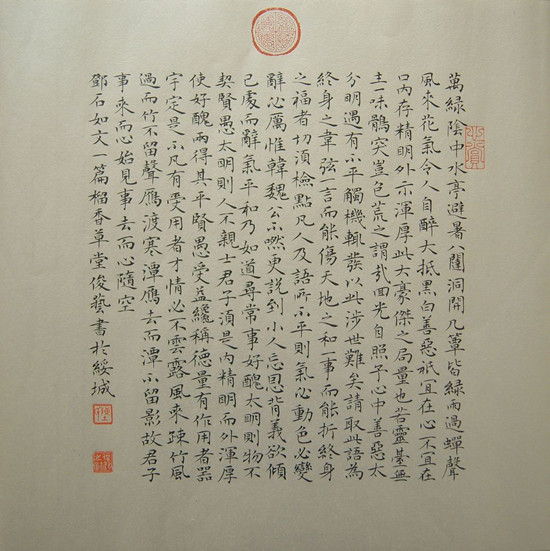 萬綠陰中水亭避暑八闥洞開几簟皆綠雨過蟬聲
風來花氣令人自醉大抵黑白善惡祇宜在心不宜在
口內存精明外示渾厚此大豪傑之局量也若靈臺無
主一味鶻突豈包荒之謂哉回光自照子心中善惡太
分明遇有不平觸機輒發以此涉世難矣請取此語為
終身之韋弦一言而能傷天地之和一事而能折終身
之福者切須檢點凡人及語所不平則氣必動色必變
辭必厲惟韓魏公不然更說到小人忘恩背義欲傾
己處而辭氣平和乃如道尋常事好醜太明則物不
契賢愚太明則人不親士君子須是內精明而外渾厚
使好醜兩得其平賢愚受益纔稱德量有作用者器
宇定是不凡有受用者才情必不雲露風來疎竹風
過而竹不留聲鴈渡寒潭鴈去而潭不留影故君子
事來而心始見事去而心隨空
鄧石如文一篇榴香草堂俊藝書於綏城